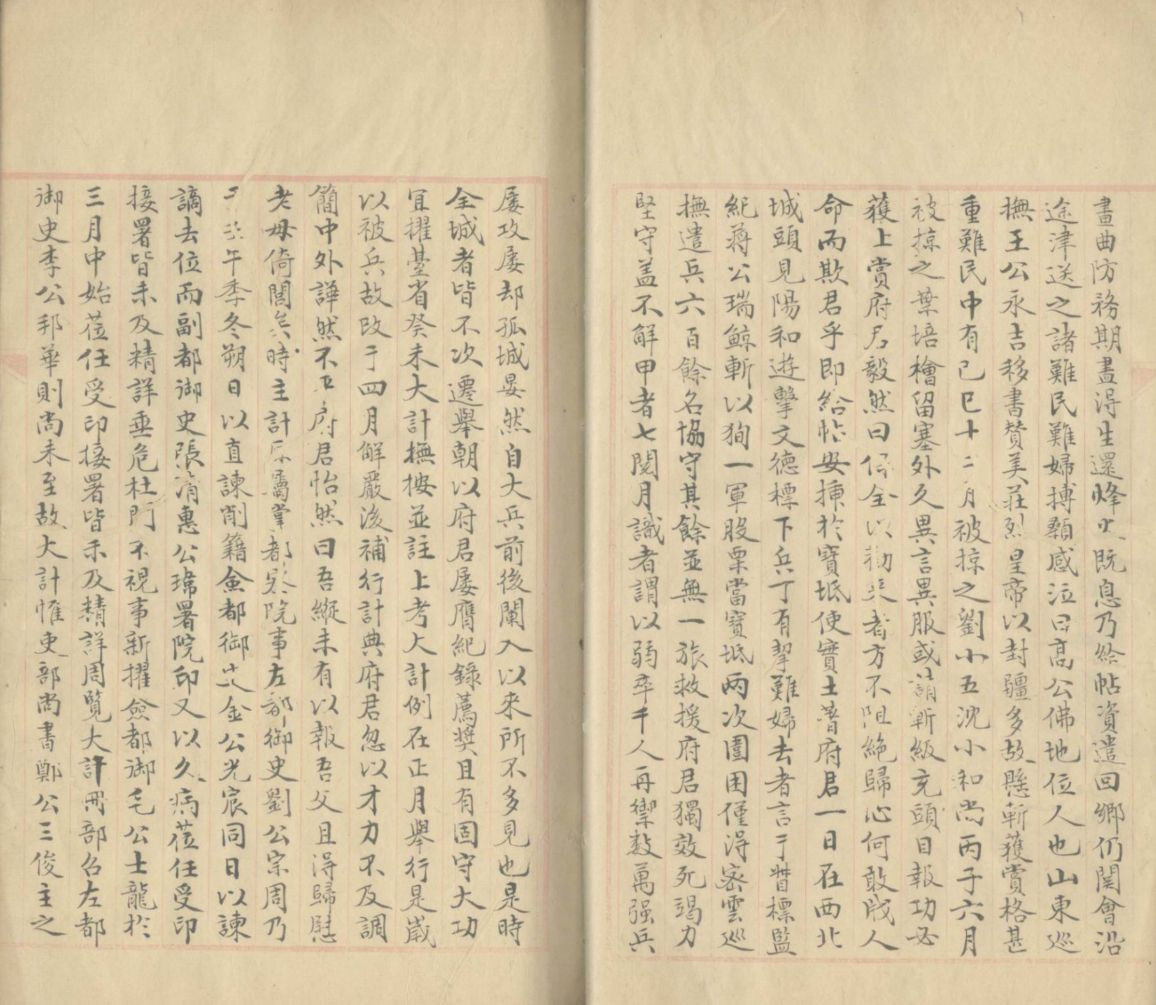 畫曲防務期盡得生還烽火既息乃給帖資遣回鄉仍関會沿
途津送之諸難民難婦摶顙感泣曰高公佛地位人也山東巡
撫王公永吉移書賛美莊烈皇帝以封疆多故懸斬獲賞格甚
重難民中有己巳十二月被掠之劉小五沈小和尚丙子六月
被掠之葉培檜留塞外久異言異服或請斬級充頭目報功必
獲上賞府君毅然曰保全以勸来者方不阻絶歸心何敢戕人
命而欺君乎即給帖安揷於寶坻使實土著府君一日在西北
城頭見陽和遊擊文德標下兵丁有挈難婦去者言于督標監
紀蔣公瑞鯨斬以狥一軍股栗當寶坻两次圍困僅得宻雲巡
撫遣兵六百餘名協守其餘並無一旅救援府君獨效死竭力
堅守盖不解甲者七閱月識者謂以弱卒千人再禦数萬强兵
屡攻屡却孤城晏然自大兵前後闌入以来所不多見也是時
全城者皆不次遷舉朝以府君屡膺紀録薦奬且有固守大功
宜擢臺省癸未大計撫按並註上考大計例在正月舉行是歲
以被兵故改于四月解嚴後補行計典府君忽以才力不及調
簡中外譁然不平府君怡然曰吾縱未有以報吾父且得歸慰
老母倚閭矣時主計原屬掌都察院事左都御史劉公宗周乃
于壬午季冬朔日以直諫削籍僉都御史金公光宸同日以諫
謫去位而副都御史張清惠公瑋署院印又以久病莅任受印
接署皆未及精詳垂危杜門不視事新擢僉都御毛公士龍於
三月中始莅任受印接署皆未及精詳周覽大計冊部名左都
御史李公邦華則尚未至故大計惟吏部尚書鄭公三俊主之